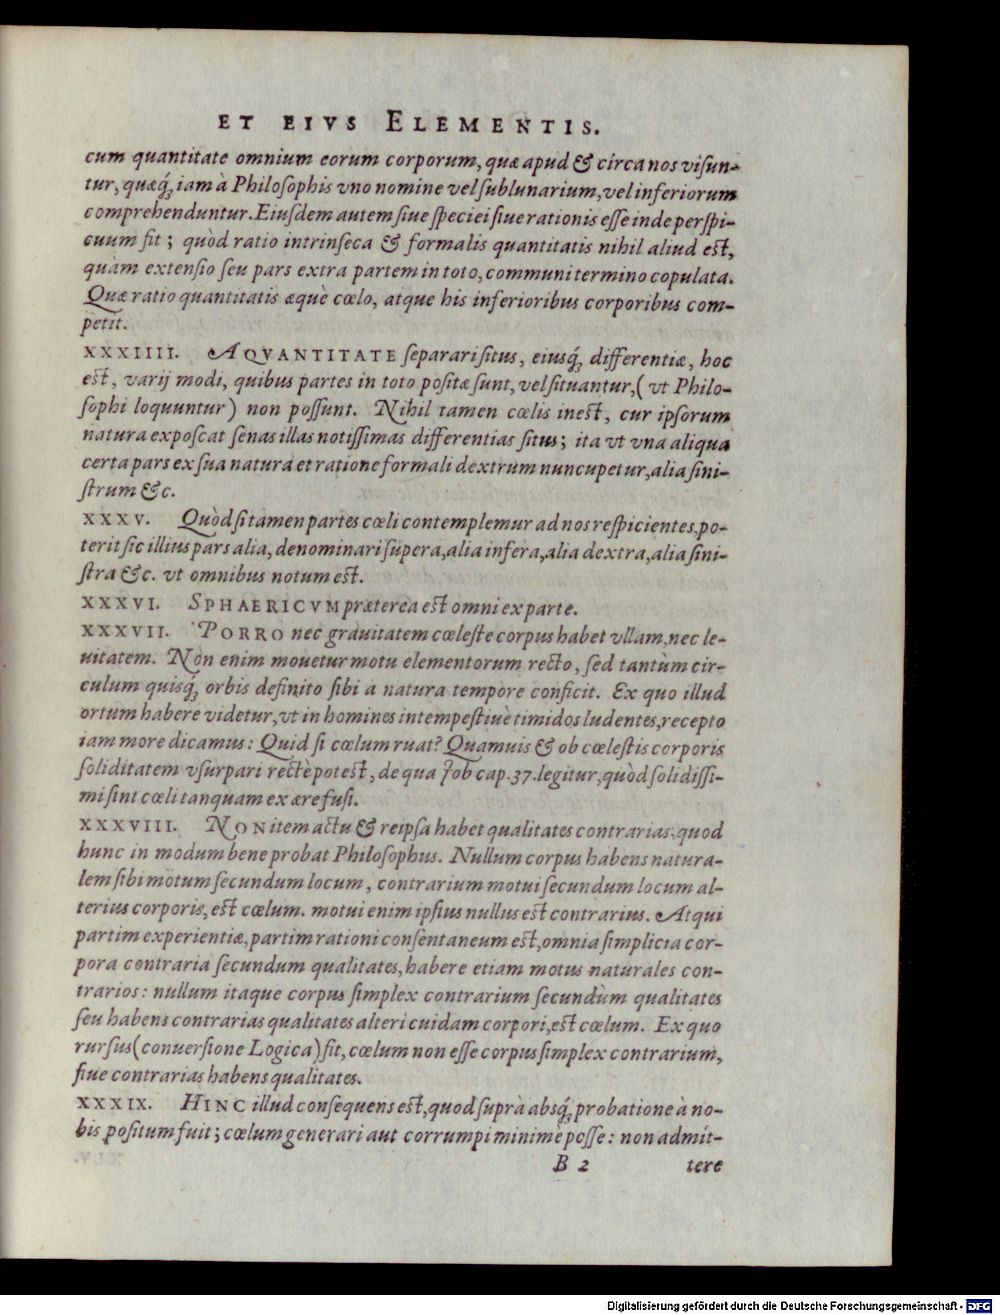 ET EIVS ELEMENTIS.
cum quantitate omnium eorum corporum, quæ apud & circa nos viſun-
tur, quæq́; iam à Philoſophis vno nomine vel ſublunarium, vel inferiorum
comprehenduntur. Eiuſdem autem ſiue ſpeciei ſiue rationis eſſe inde perſpi-
cuum fit; quòd ratio intrinſeca & formalis quantitatis nihil aliud eſt,
quàm extenſio ſeu pars extra partem in toto, communi termino copulata.
Quæ ratio quantitatis æquè cœlo, atque his inferioribus corporibus com-
petit.
XXXIIII. A QVANTITATE ſeparari ſitus, eiusq́; differentiæ, hoc
eſt, varij modi, quibus partes in toto poſitæ ſunt, vel ſituantur, (vt Philo-
ſophi loquuntur) non poſſunt. Nihil tamen cœlis ineſt, cur ipſorum
natura expoſcat ſenas illas notiſſimas differentias ſitus; ita vt vna aliqua
certa pars ex ſua natura et ratione formali dextrum nuncupetur, alia ſini-
ſtrum &c.
XXXV. Quòd ſi tamen partes cœli contemplemur ad nos reſpicientes, po-
terit ſic illius pars alia, denominari ſupera, alia infera, alia dextra, alia ſini-
ſtra &c. vt omnibus notum eſt.
XXXVI. SPHAERICVM præterea eſt omni ex parte.
XXXVII. PORRO nec grauitatem cœleſte corpus habet vllam, nec le-
uitatem. Non enim mouetur motu elementorum recto, ſed tantùm cir-
culum quisq́; orbis definito ſibi a natura tempore conficit. Ex quo illud
ortum habere videtur, vt in homines intempeſtiuè timidos ludentes, recepto
iam more dicamus: Quid ſi cœlum ruat? Quamuis & ob cœleſtis corporis
ſoliditatem vſurpari rectè poteſt, de qua Job cap. 37. legitur, quòd ſolidiſſi-
mi ſint cœli tanquam ex ære fuſi.
XXXVIII. NON item actu & reipſa habet qualitates contrarias; quod
hunc in modum bene probat Philoſophus. Nullum corpus habens natura-
lem ſibi motum ſecundum locum, contrarium motui ſecundum locum al-
terius corporis, eſt cœlum. motui enim ipſius nullus eſt contrarius. Atqui
partim experientiæ, partim rationi conſentaneum eſt, omnia ſimplicia cor-
pora contraria ſecundum qualitates, habere etiam motus naturales con-
trarios: nullum itaque corpus ſimplex contrarium ſecundùm qualitates
ſeu habens contrarias qualitates alteri cuidam corpori, eſt cœlum. Ex quo
rurſus (conuerſione Logica) fit, cœlum non eſſe corpus ſimplex contrarium,
ſiue contrarias habens qualitates.
XXXIX. HINC illud conſequens eſt, quod ſuprà absq́; probatione à no-
bis poſitum fuit; cœlum generari aut corrumpi minimè poſſe: non admit-
B 2 tere
Digitalisierung gefördert durch die Deutsche Forschungsgemeinschaft - DFG